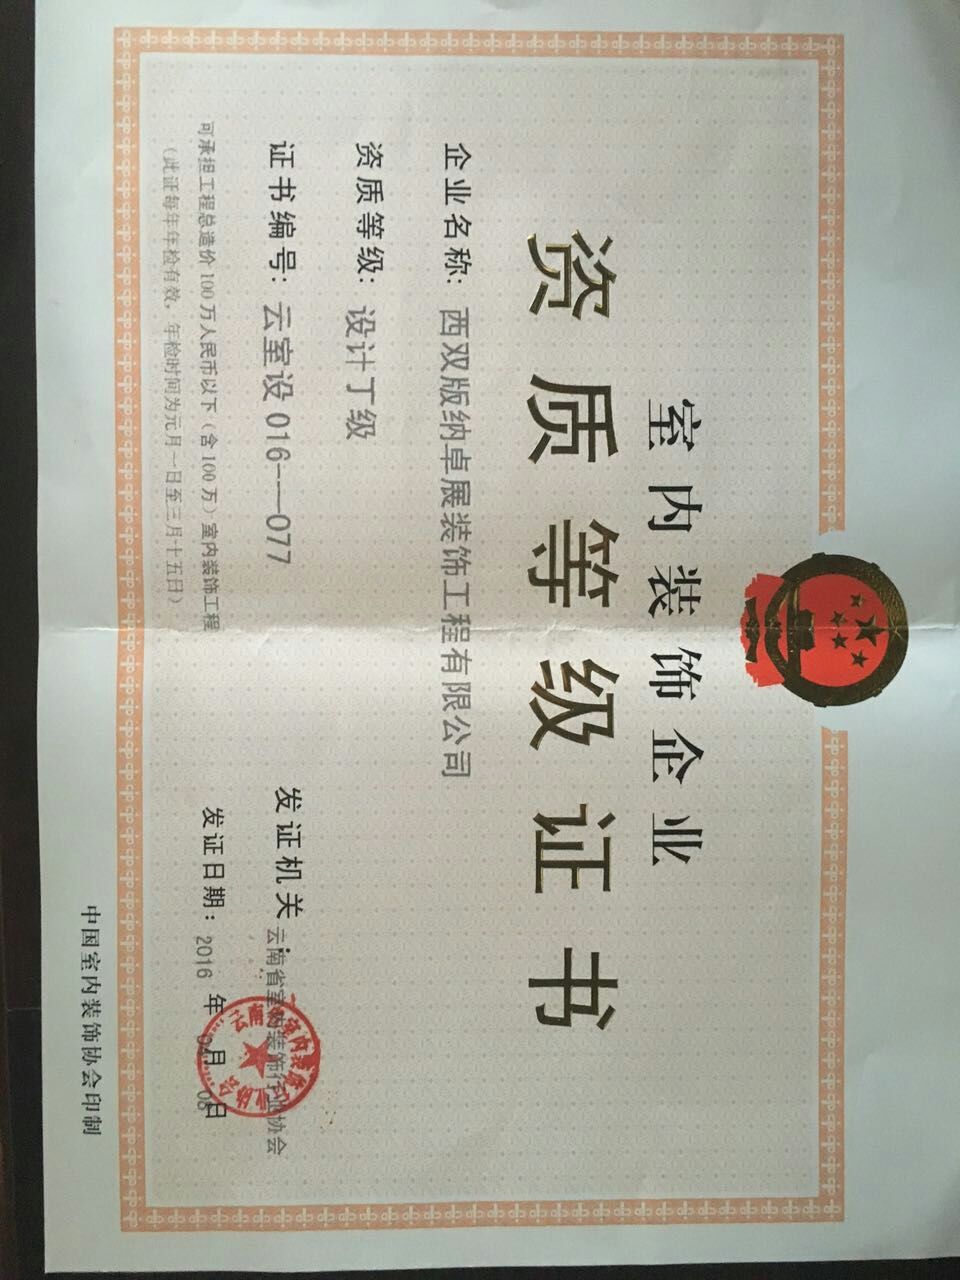 室内装饰企业
资质等级证书
企业名称：西双版纳卓展装饰工程有限公司
资质等级：设计丁级
证书编号：云室设 016—077
可承担工程总造价100万人民币以下（含100万）室内装饰工程
（此证每年年检有效，年检时间为元月一日至三月十五日）
发证机关 云南省室内装饰行业协会
发证日期：2016 年 04 月 08 日
云南省室内装饰行业协会
中国室内装饰协会印制